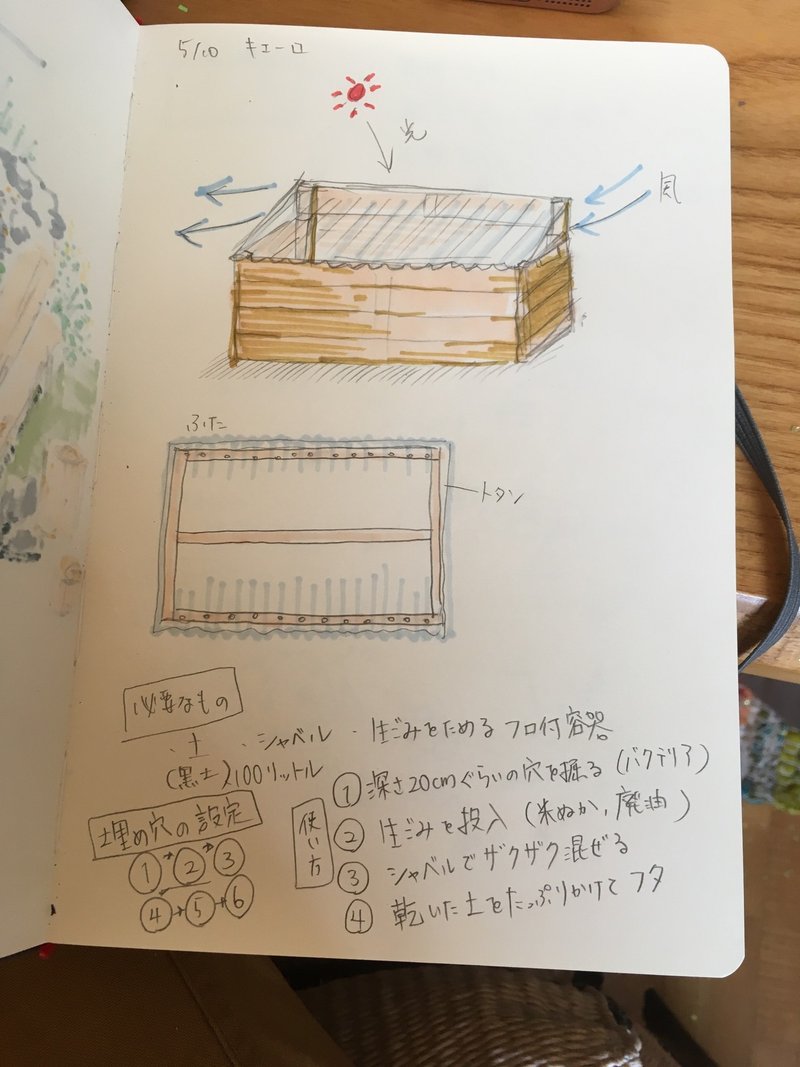 5/10 キエーロ
光
風
ふた
トタン
必要なもの
・土 ・シャベル ・生ごみをためるフロ付容器
(黒土)100リットル
埋め穴の設定
① → ② → ③
④ → ⑤ → ⑥
使い方
① 深さ20cmぐらいの穴を掘る (バクテリア)
② 生ごみを投入 (米ぬか, 廃油)
③ シャベルでザクザク混ぜる
④ 乾いた土をたっぷりかけてフタ